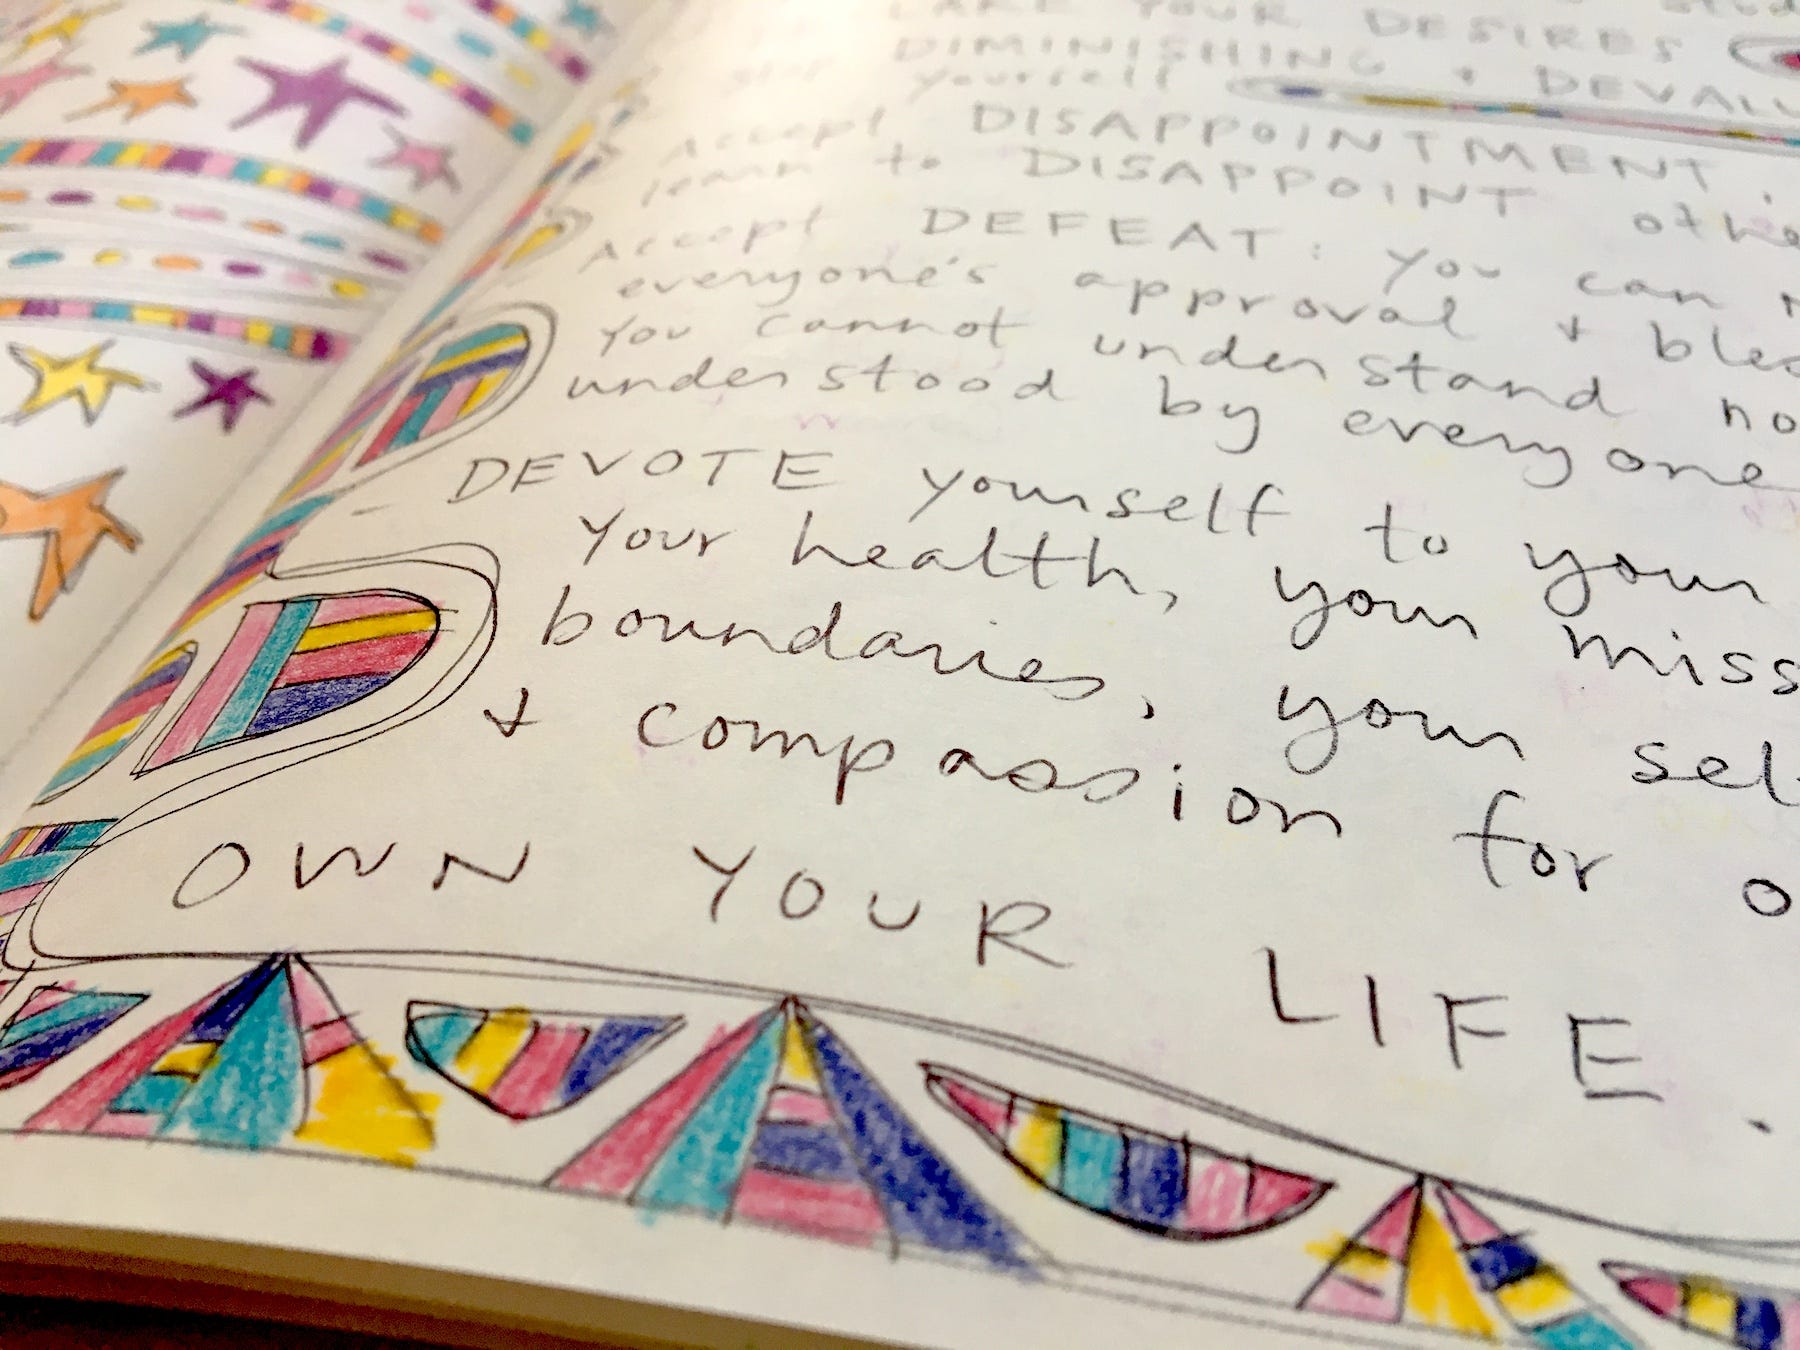 YOUR DESIRES
DIMINISHING + DEVALU
yourself
Accept DISAPPOINTMENT.
learn to DISAPPOINT othe
Accept DEFEAT: You can n
everyone's approval + bles
You cannot understand no
understood by everyone
DEVOTE yourself to your
Your health, your miss
boundaries, your sel
+ compassion for o
OWN YOUR LIFE.